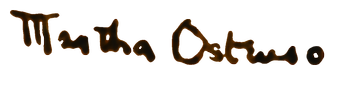 Martha Ostenso